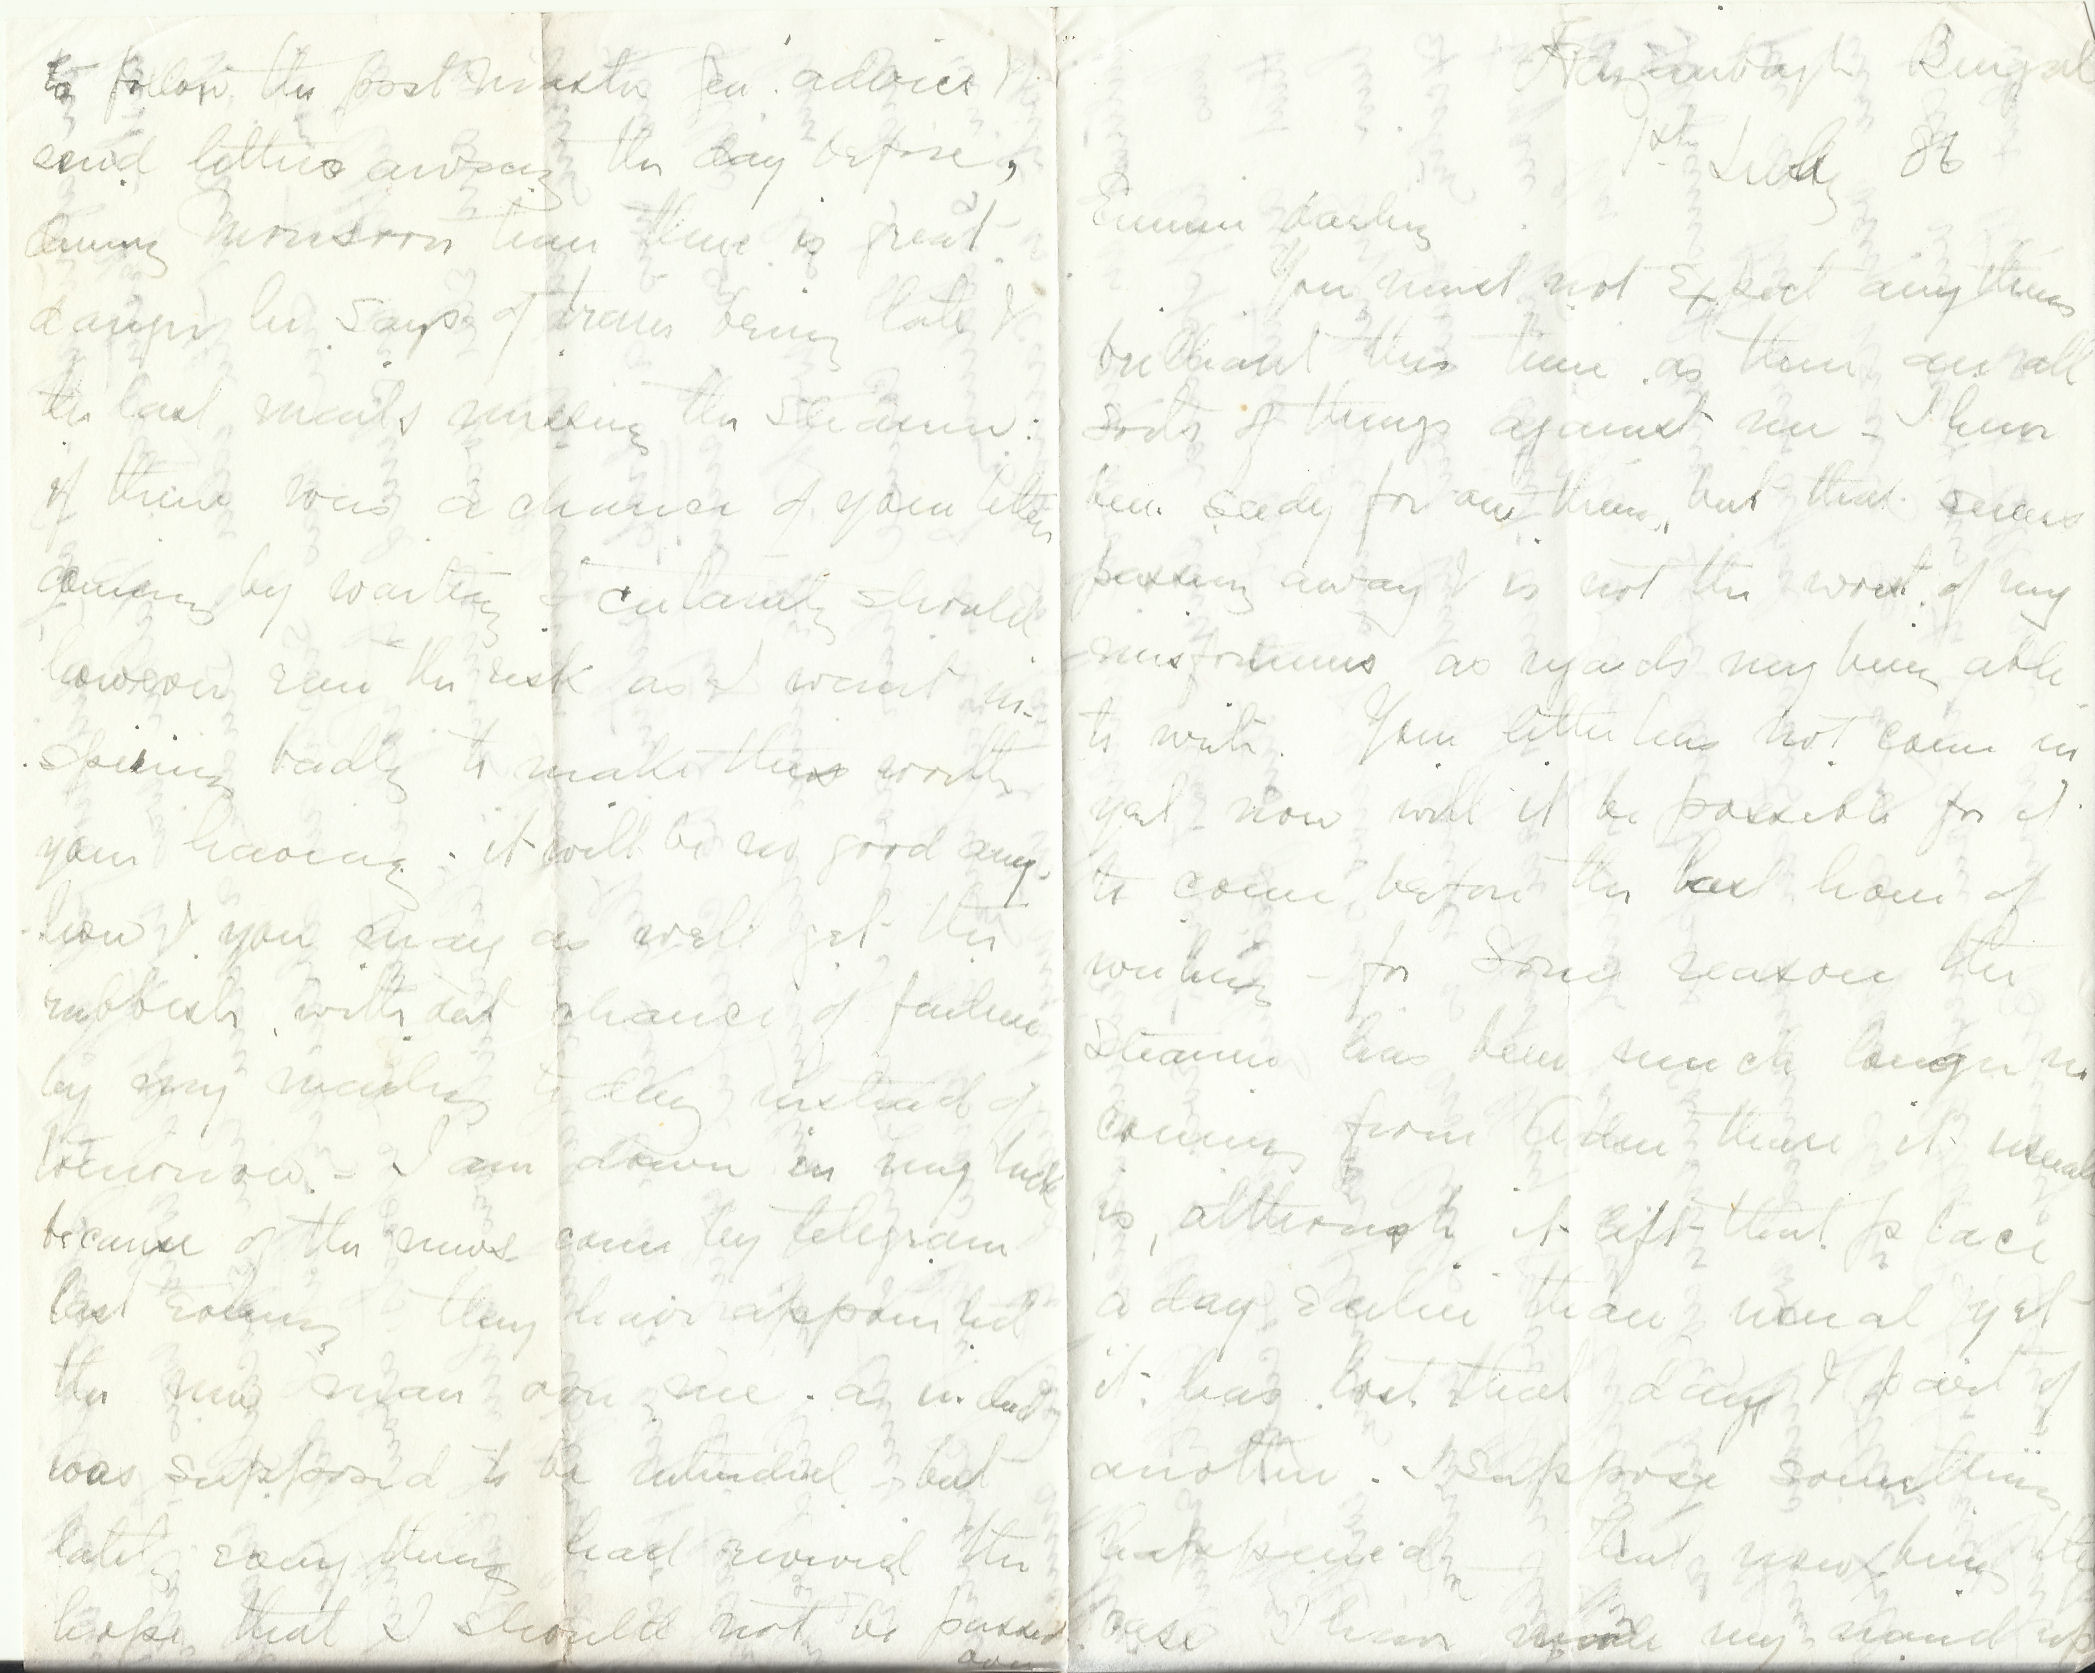 Hazaribagh Bengal
1st July 86
Emmie darling
You must not expect anything
brilliant this time as there are all
sorts of things against me - I have
been seedy for one thing, but that seems
passing away & is not the worst of my
misfortunes as regards my being able
to write. Your letter has not come in
yet nor will it be possible for it
to come before the last hour of
writing - for some reason the
steamer has been much longer in
coming from Aden than it usually
is, although it left that place
a day earlier than usual yet
it has lost that day & part of
another. I suppose something
happened. That now being the
case I have made my mind up
to follow the post master Gen. advice &
send letters away the day before,
during monsoon time there is great
danger he says of trains being late &
the last mails missing the steamer:
if there was a chance of your letter
coming by waiting I certainly should
however run the risk as I want in-
spiring badly to make this worth
your having. it will be no good any-
how & you may as well get this
rubbish without chance of failure
by my mailing today instead of
tomorrow. - I am down in my luck
because of the news come by telegram
last evening they have appointed
the new man over me. as indeed
was supposed to be intended - but
lately everything had revived the
hope that I should not be passed
over